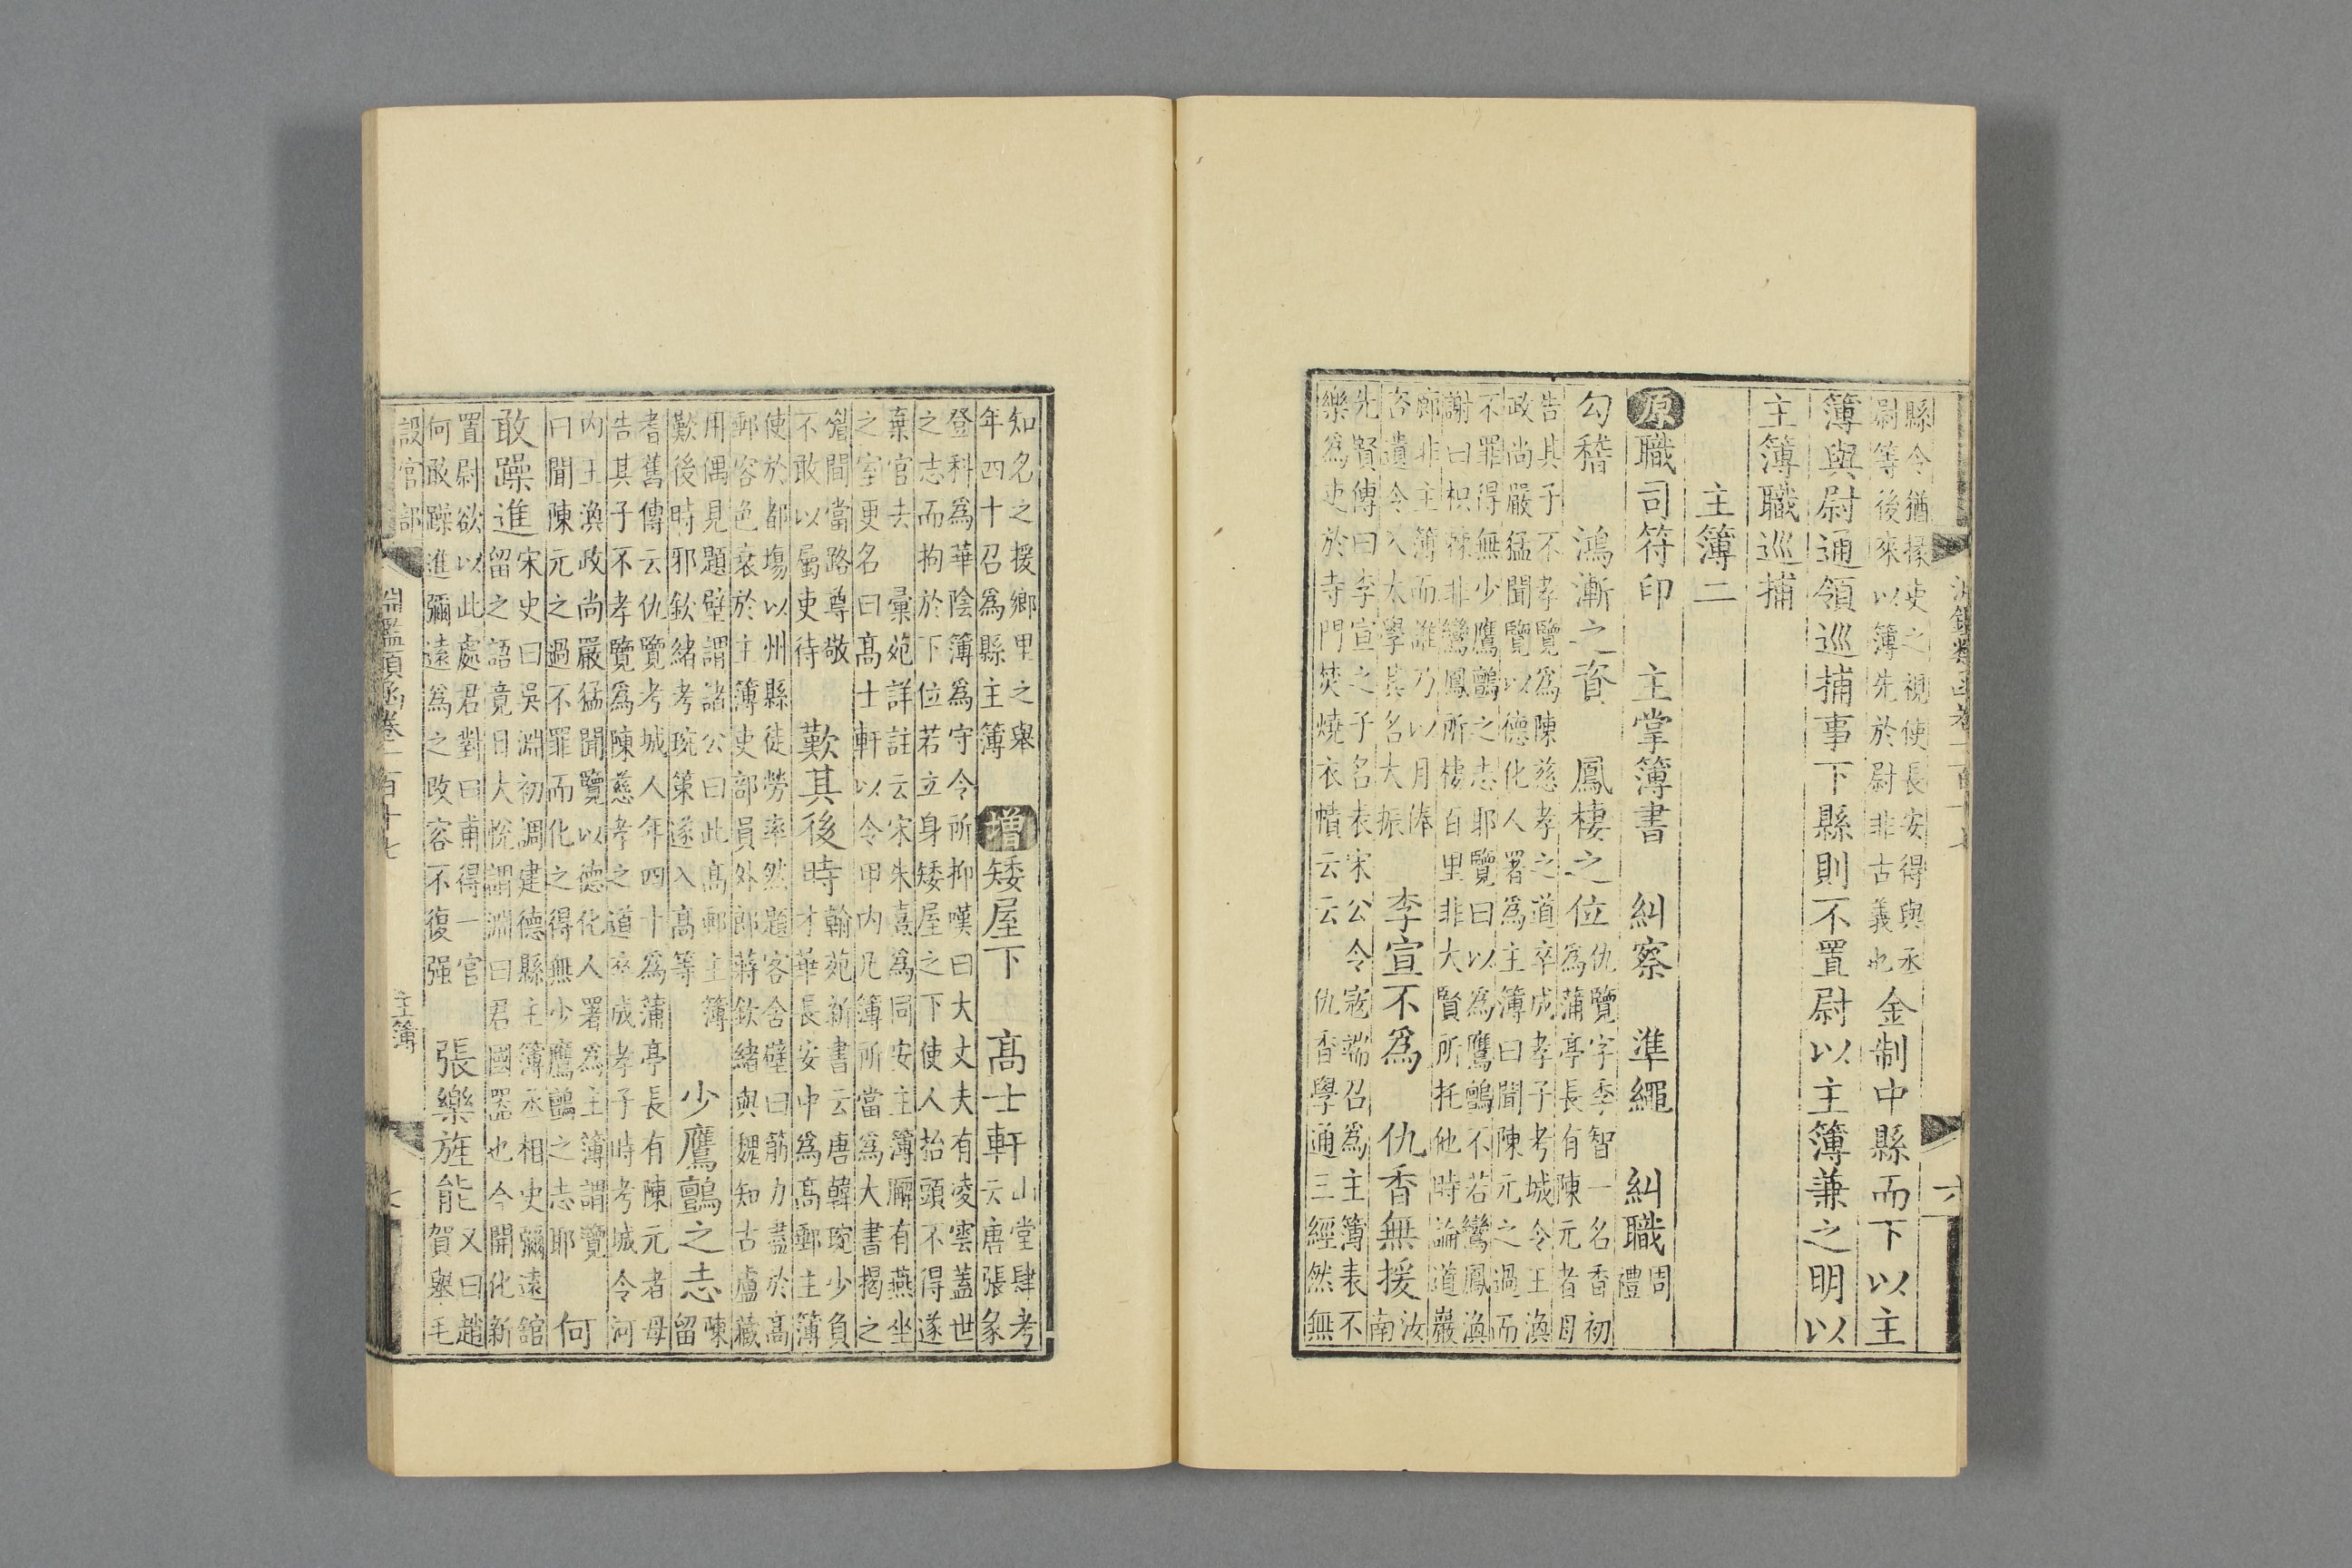 縣令猶掾史之視使長安得與丞
尉等後來以簿先於尉非古義也
金制中縣而下以主
簿與尉通領巡捕事下縣則不置尉以主簿兼之明以
主簿職巡捕
主簿二
原職司符印 主掌簿書 糾察 準繩 糾職
周
禮
勾稽 鴻漸之資 鳳棲之位
仇覽字季智一名香初
為蒲亭長有陳元者母
告其子不孝覽為陳慈孝之道卒成孝子考城令王渙
政尚嚴猛聞覽以德化人署為主簿曰聞陳元之過而
不罪得無少鷹鸇之志耶覽曰以為鷹鸇不若鸞鳳渙
謝曰枳棘非鸞鳳所棲百里非大賢所托他時論道巖
廊非主簿而誰乃以月俸
咨遺令入太學其名大振
李宣不為 仇香無援
汝
南
先賢傳曰李宣之子名表宋公令寇端召為主簿表不
樂為吏於寺門焚燒衣幘云云 仇香學通三經然無
知名之援鄉里之舉
年四十召為縣主簿
增矮屋下 高士軒
山堂肆考
云唐張彖
登科為華陰簿為守令所抑嘆曰大丈夫有凌雲蓋世
之志而拘於下位若立身矮屋之下使人抬頭不得遂
棄官去 彙苑詳註云宋朱熹為同安主簿廨有燕坐
之室更名曰高士軒以令甲內凡簿所當為大書揭之
楣間當路尊敬
不敢以屬吏待
歎其後時
翰苑新書云唐韓琬少負
才華長安中為高郵主簿
使於都場以州縣徒勞率然題客舍壁曰筋力盡於高
郵容色衰於主簿吏部員外郎蔣欽緒與魏知古盧藏
用偶見題壁謂諸公曰此高郵主簿
歎後時邪欽緒考琬策遂入高等
少鷹鸇之志
陳
留
耆舊傳云仇覽考城人年四十為蒲亭長有陳元者母
告其子不孝覽為陳慈孝之道卒成孝子時考城令河
內王渙政尚嚴猛聞覽以德化人署為主簿謂覽
曰聞陳元之過不罪而化之得無少鷹鸇之志耶
何
敢躁進
宋史曰吳淵初調建德縣主簿丞相史彌遠館
留之語竟日大悅謂淵曰君國器也今開化新
置尉欲以此處君對曰甫得一官
何敢躁進彌遠為之改容不復强
張樂旌能
又曰趙
賀舉毛
設官部
淵鑑類函卷一百十七
主簿
七
淵鑑類函卷一百十七
六